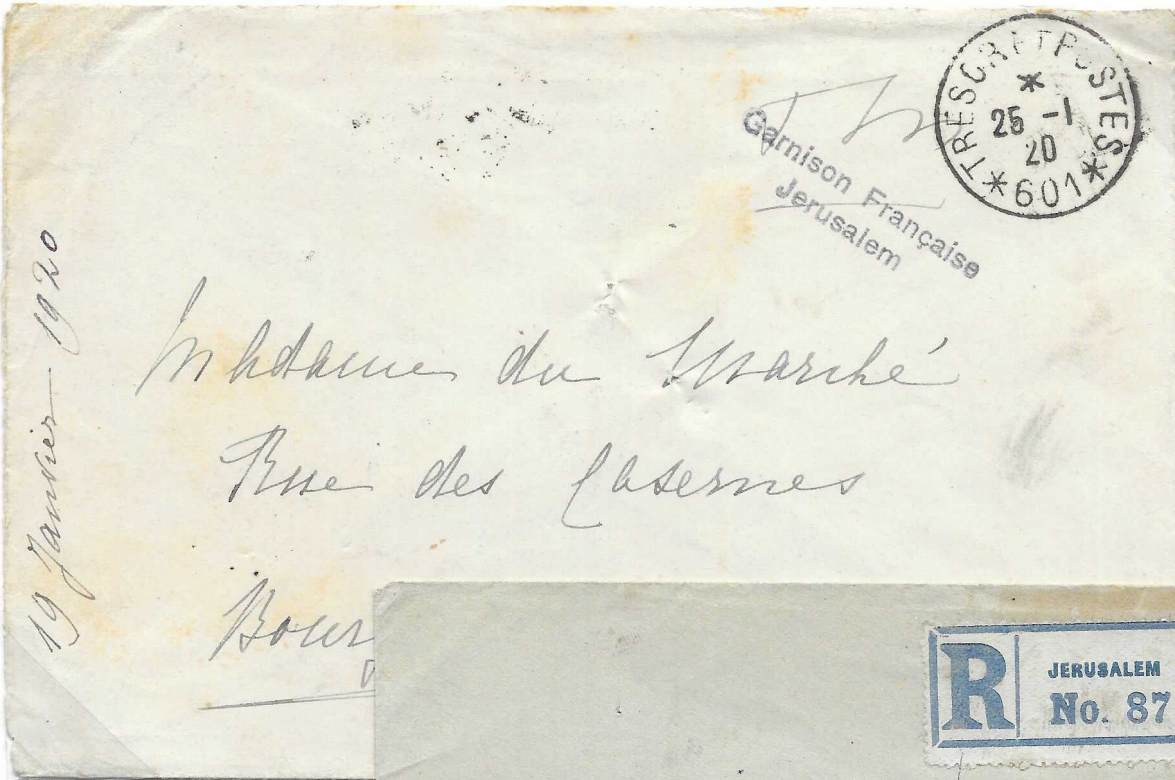 TRESOR ET POSTES
25 -1
20
*601*
Garnison Française
Jerusalem
19 Janvier 1920
Madame du Marché
Rue des Casernes
R JERUSALEM
No. 87